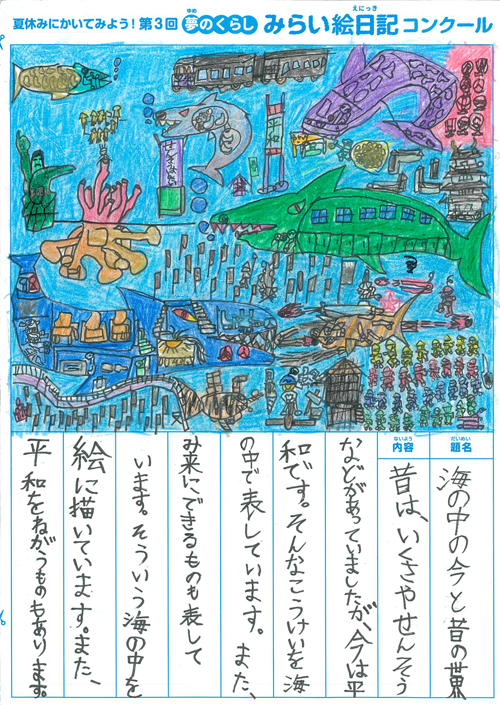 夏休みにかいてみよう!第3回 夢のくらし みらい絵日記コンクール
ゆめ
えにっき
平和
だいめい
題名
海の中の今と昔の世界
ないよう
内容
昔は、いくさやせんそう
などがあっていましたが、今は平
和です。そんなこうけいを海
の中で表しています。また、
み来にできるものも表して
います。そういう海の中を
絵に描いています。また、
平和をねがうものもあります。